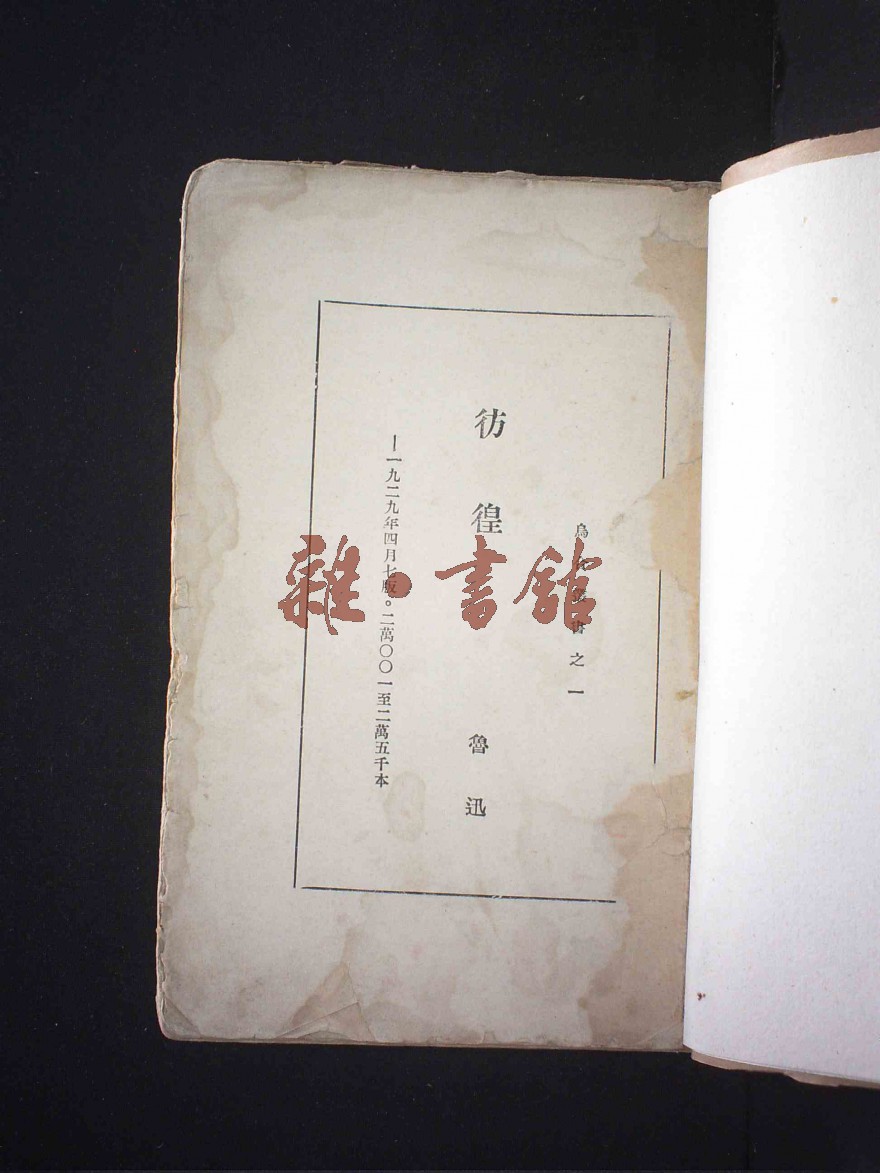 烏合叢書之一
彷徨
魯迅
一九二九年四月七版。二萬〇〇一至二萬五千本
雜·書館